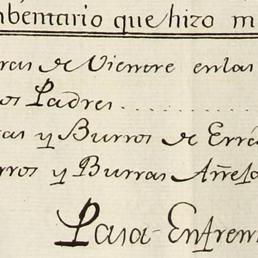 nbentario que hizo m
ras de Vientre en las
os Padres..........
as y Burros de Erre
rros y Burras Añejo
Pasa Enfren